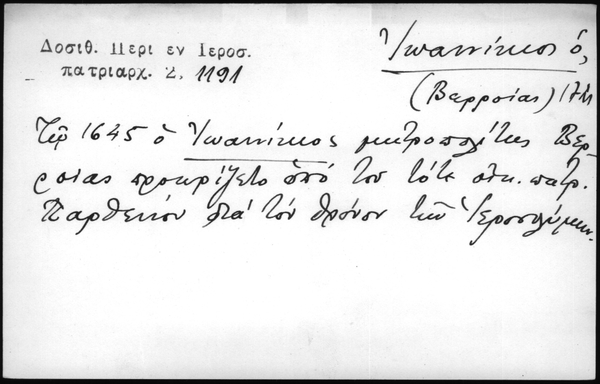 Δοσιθ. Περι εν Ιεροσ.
πατριαρχ. 2, 1191
Ἰωαννίκιος ὁ,
(Βερροίας) 17ος
Τῷ 1645 ὁ Ἰωαννίκιος μητροπολίτης Βερ-
ροίας προεκρίζετο ὑπό του τότε οἰκ. πατρ.
Παρθενίου διά τόν θρόνον τῶν Ἱεροσολύμων.